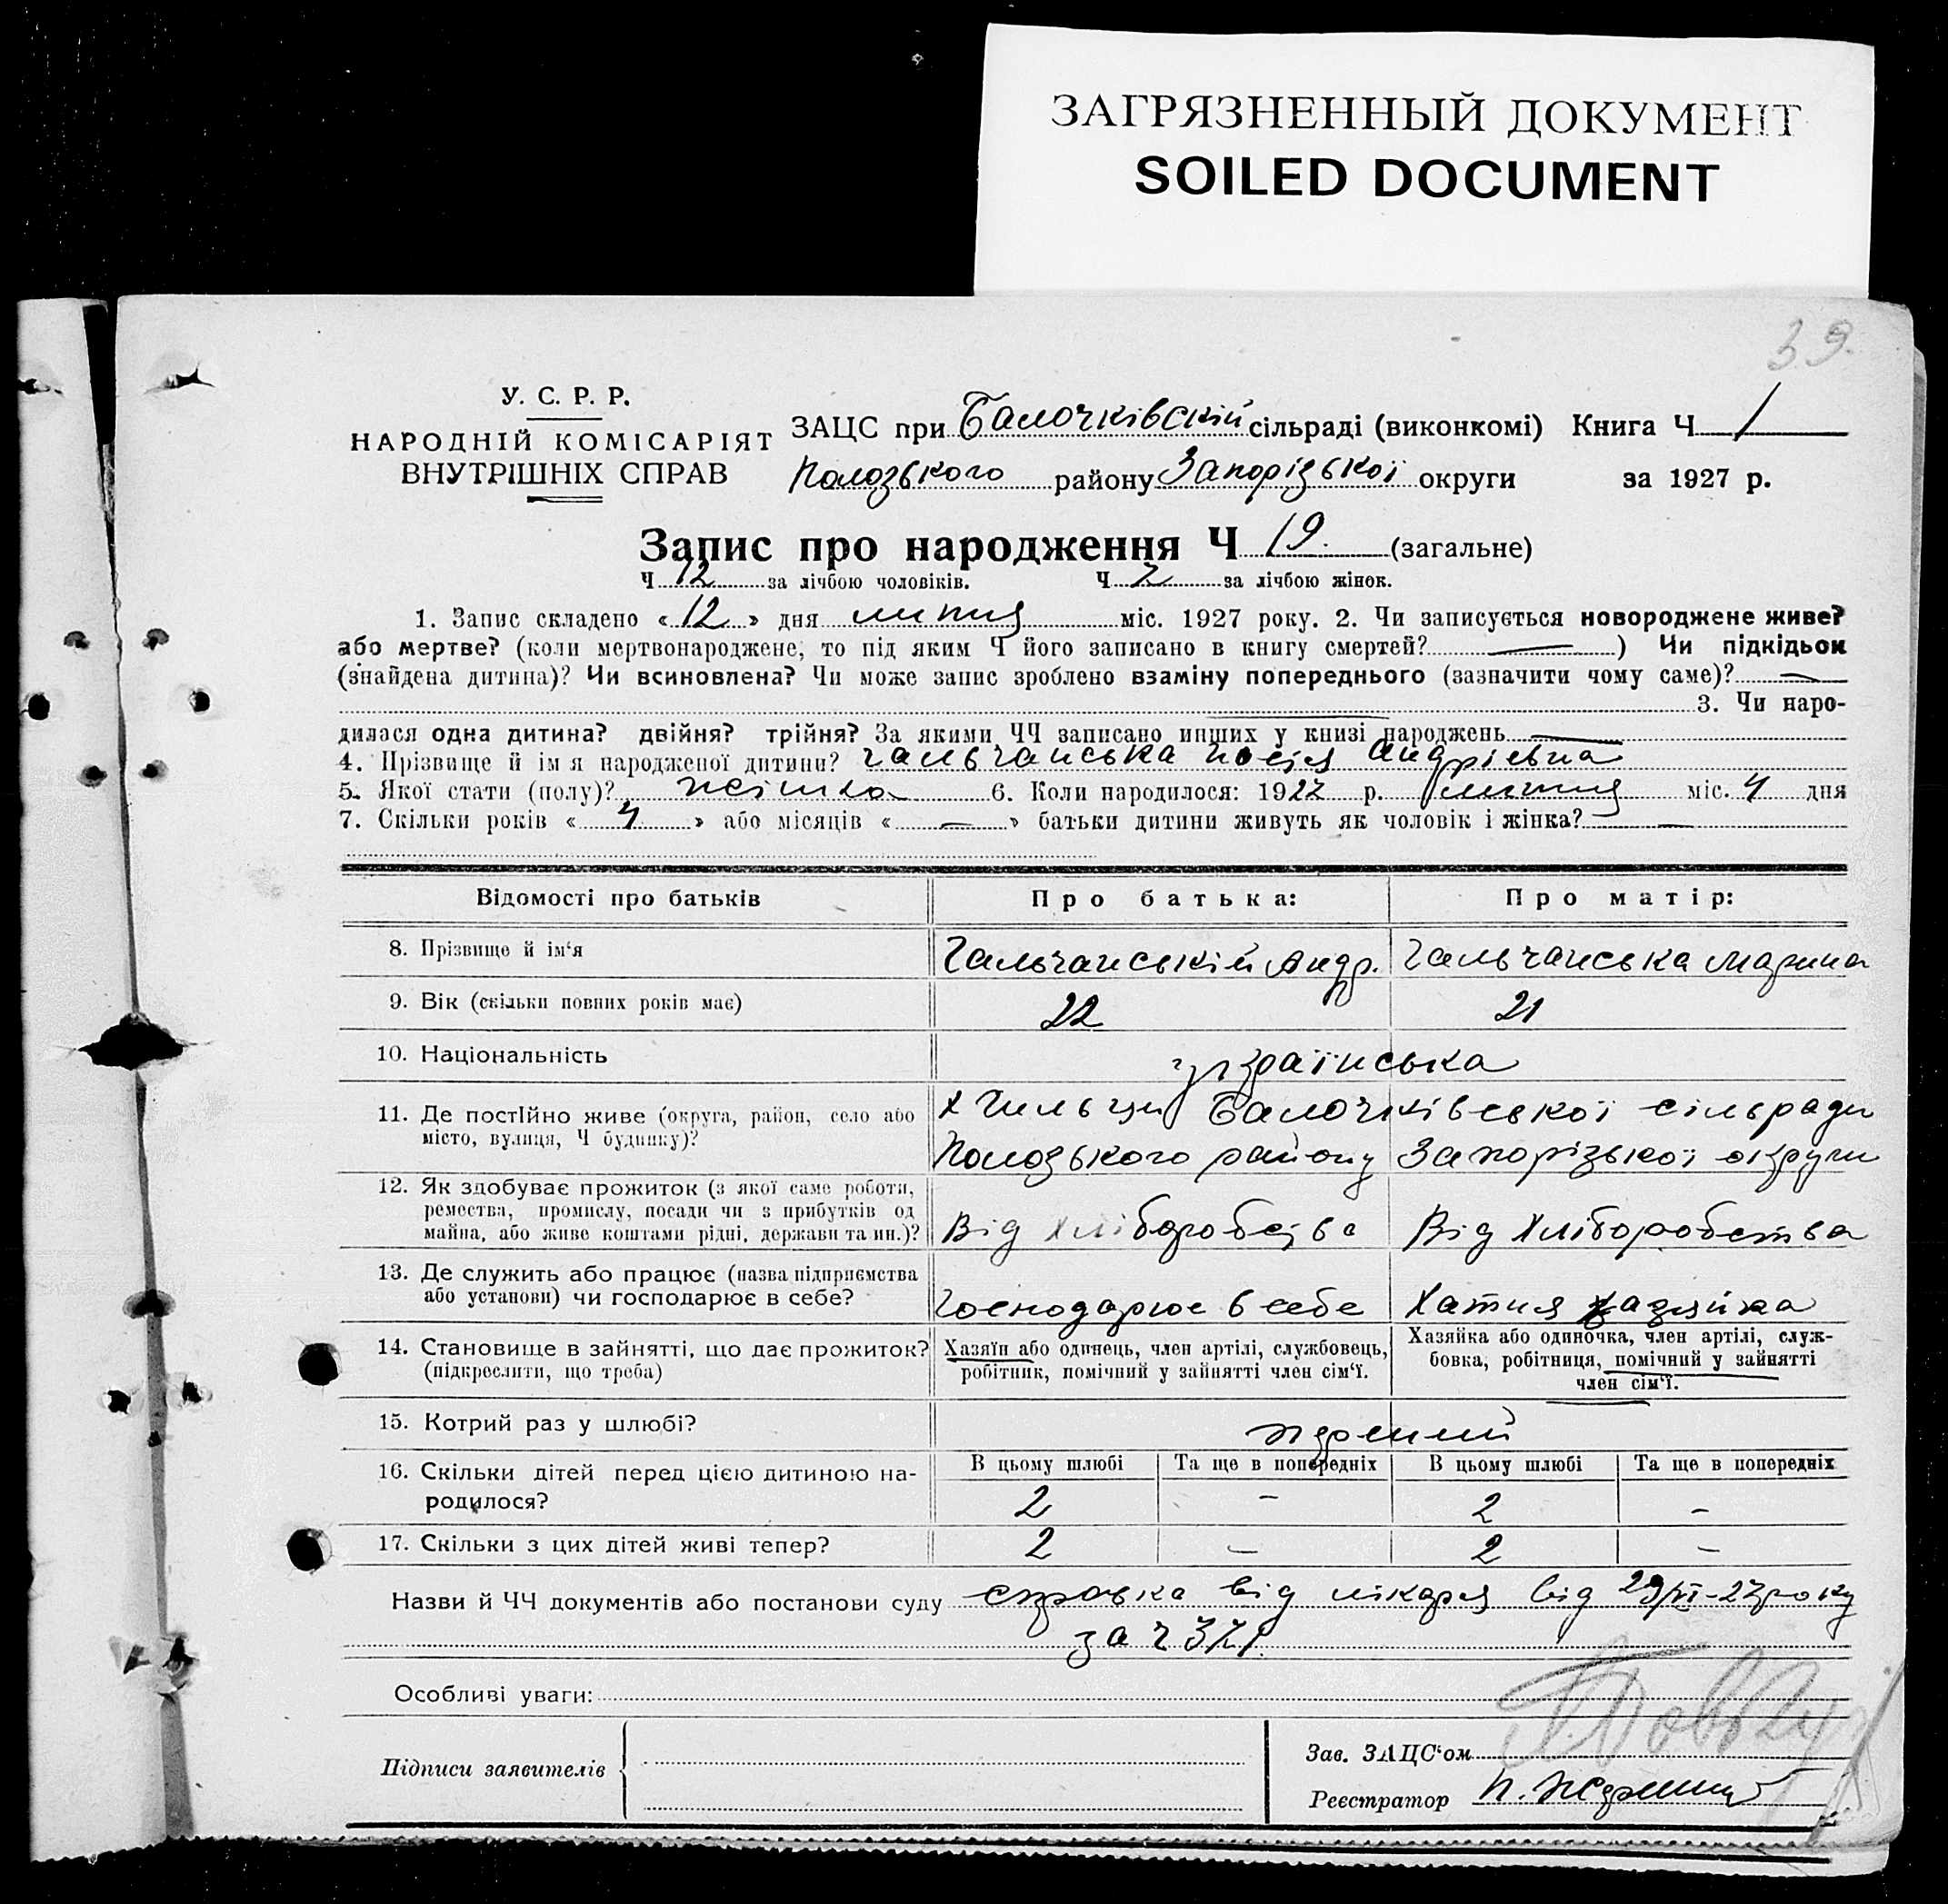 ЗАГРЯЗНЕННЫЙ ДОКУМЕНТ
SOILED DOCUMENT
39.
У. С. Р. Р.
НАРОДНІЙ КОМІСАРІЯТ
ВНУТРІШНІХ СПРАВ
ЗАЦС при Балочківскій сільраді (виконкомі) Книга Ч 1
Пологзького району Запорізької округи за 1927 р.
Запис про народження Ч 19. (загальне)
Ч 12 за лічбою чоловіків. Ч 7 за лічбою жінок.
1. Запис складено « 12 » дня липня міс. 1927 року. 2. Чи записується новороджене живе?
або мертве? (коли мертвонароджене, то під яким Ч його записано в книгу смертей? — ) Чи підкідьок
(знайдена дитина)? Чи всиновлена? Чи може запис зроблено взаміну попереднього (зазначити чому саме)? —
3. Чи наро-
дилася одна дитина? двійня? трійня? За якими ЧЧ записано инших у книзі народжень —
4. Прізвище й імя народженої дитини? Гальчанська Андріевна
5. Якої стати (полу)? жінка 6. Коли народилося: 1927 р. липня міс. 4 дня
7. Скільки років « 4 » або місяців « — » батьки дитини живуть як чоловік і жінка? —
Відомості про батьків Про батька: Про матір:
8. Прізвище й ім‘я Гальчанський Андр. Гальчанська Марина
9. Вік (скільки повних років має) 22 21
10. Національність українська
11. Де постІйно живе (округа, район, село або
місто, вулиця, Ч будинку)?
Балочківської сільради
Пологзького району Запорізької округи
12. Як здобуває прожиток (з якої саме роботи,
ремества, промислу, посади чи з прибутків од
майна, або живе коштами рідні, держави та ин.)?
Від хліборобства Від хліборобства
13. Де служить або працює (назва підприємства
або установи) чи господарює в себе?
Господарює в себе Хатня хазяйка
14. Становище в зайнятті, що дає прожиток?
(підкреслити, що треба)
Хазяїн або одинець, член артілі, службовець,
робітник, помічний у зайнятті член сім‘ї.
Хазяйка або одиночка, член артілі, служ-
бовка, робітниця, помічний у зайнятті
член сім‘ї.
15. Котрий раз у шлюбі?
16. Скільки дітей перед цією дитиною на-
родилося?
В цьому шлюбі Та ще в попередніх В цьому шлюбі Та ще в попередніх
2 – 2 –
17. Скільки з цих дітей живі тепер? 2 – 2 –
Назви й ЧЧ документів або постанови суду справка від лікаря від 29/VI-27 року
за ч 371.
Особливі уваги:
Підписи заявителів
Зав. ЗАЦС‘ом
Реєстратор